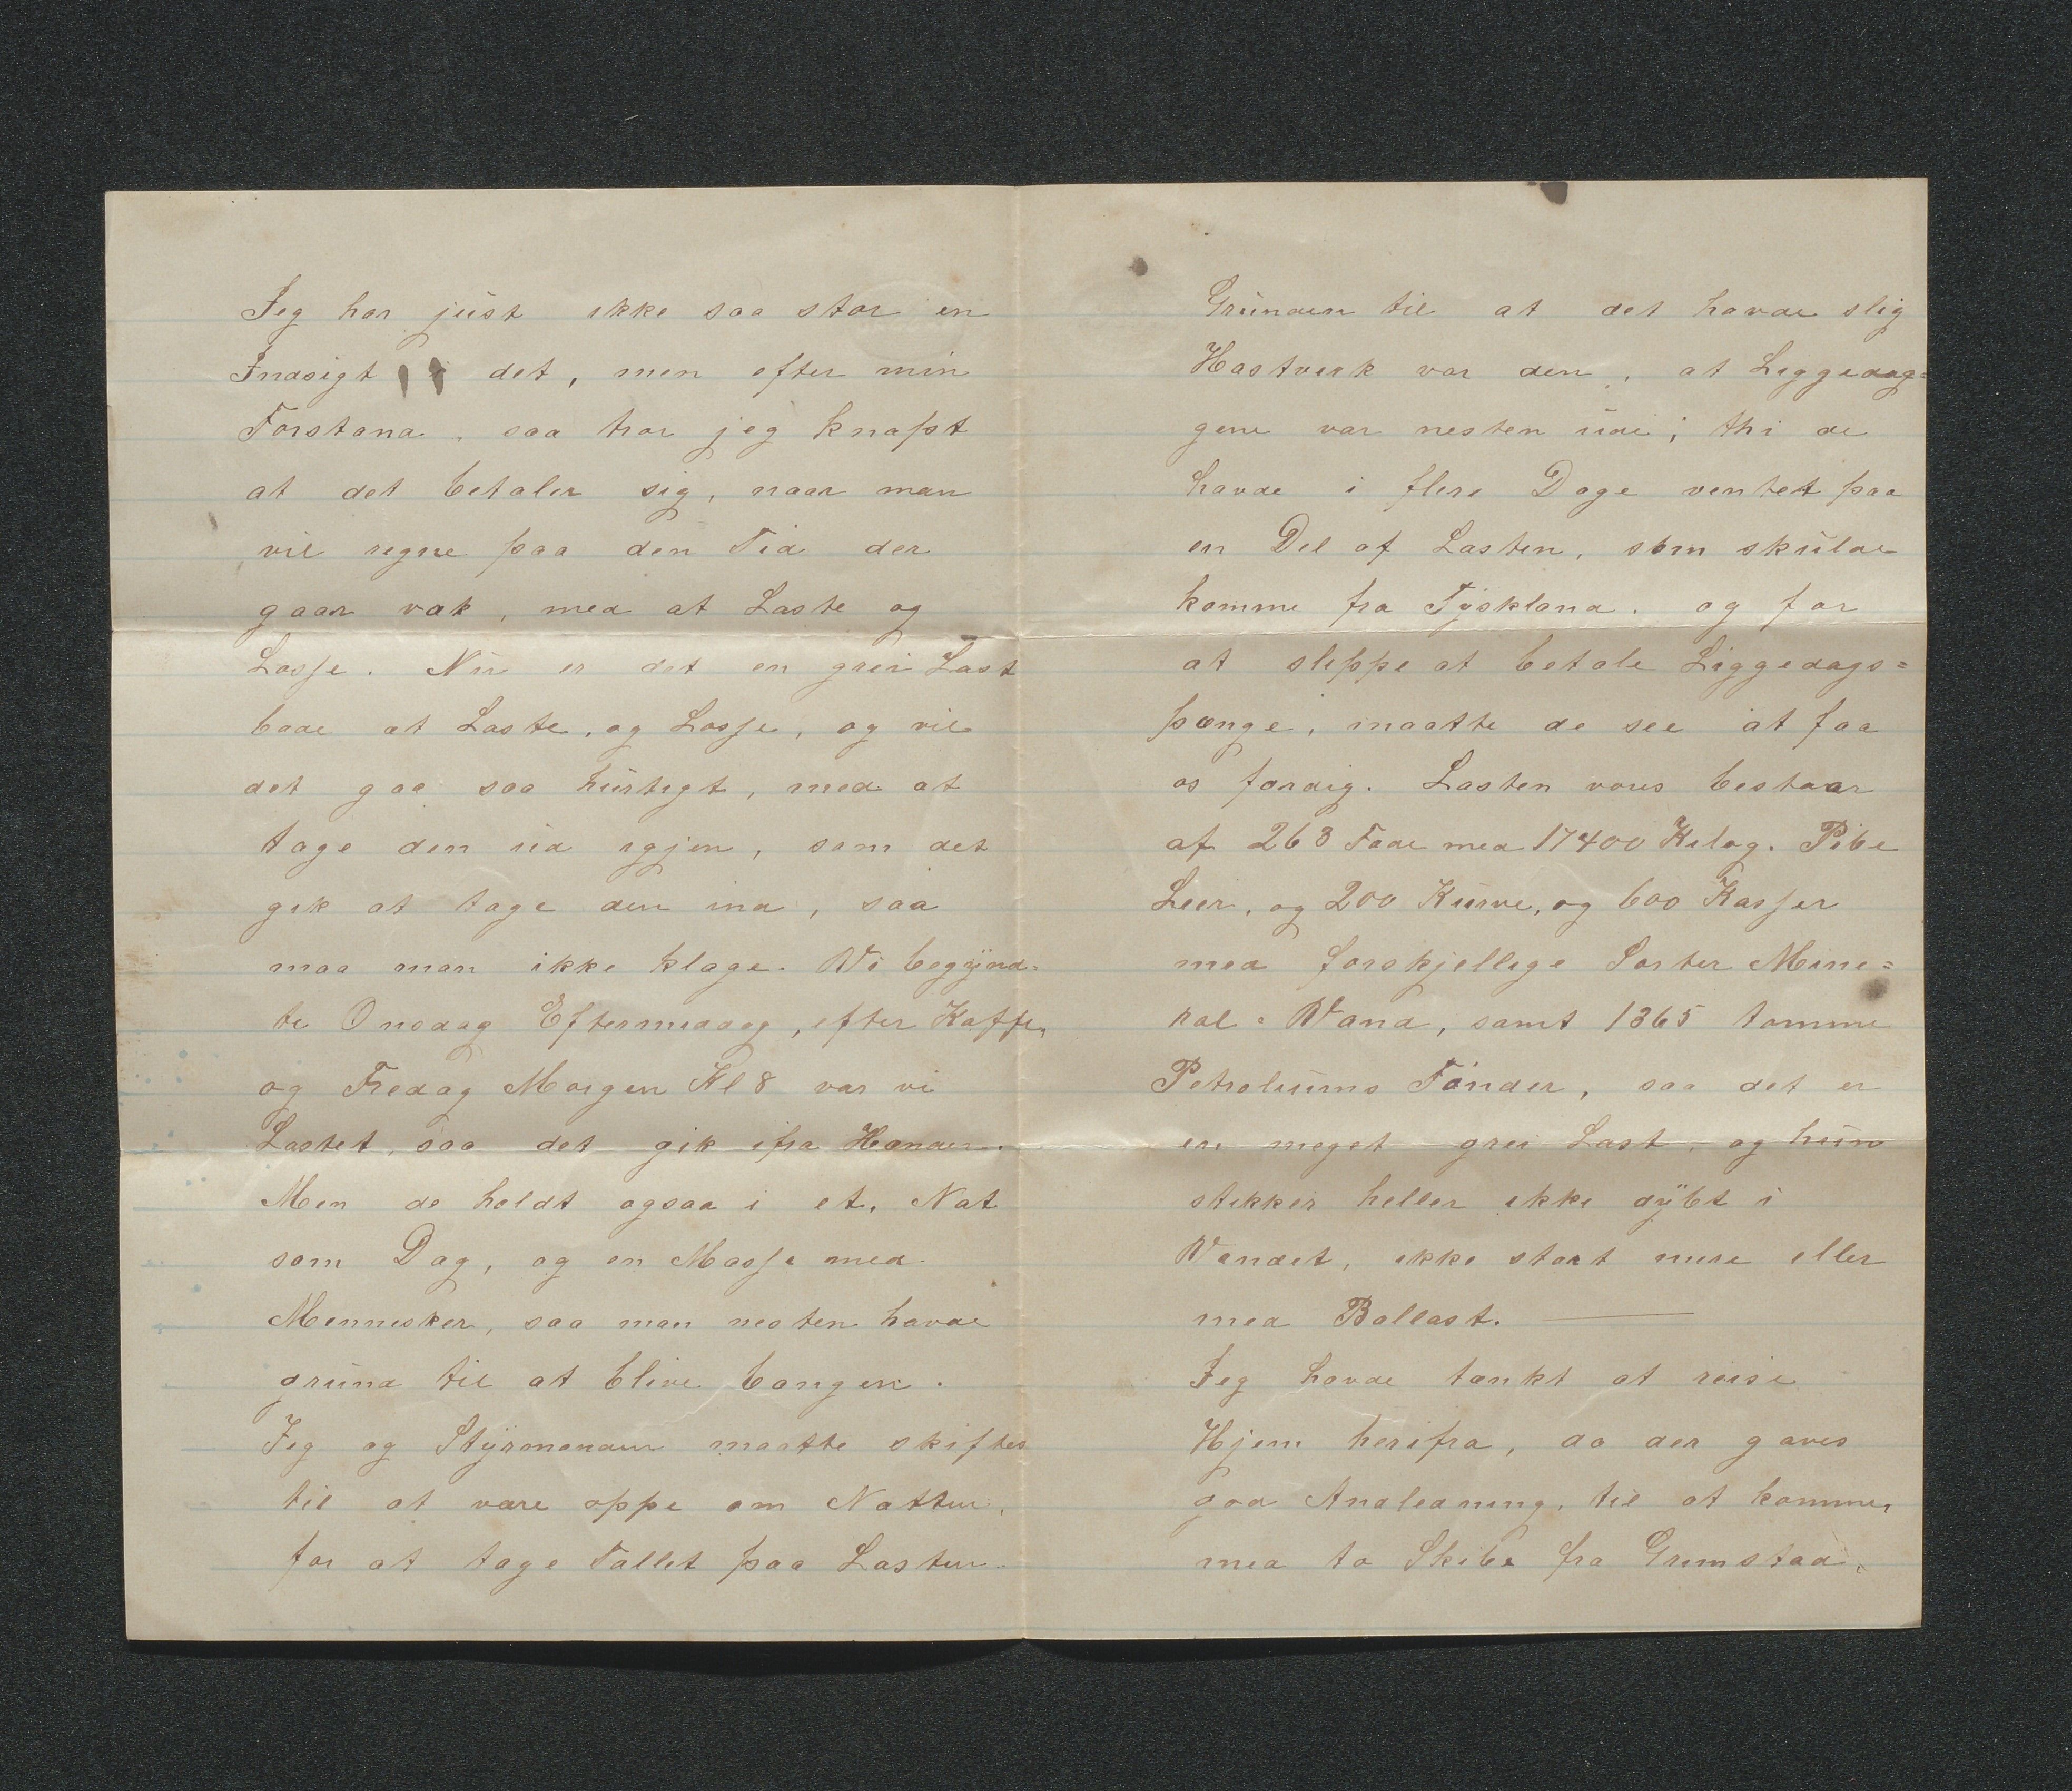 Jeg har just ikke saa stor en
Indsigt i det, men efter min
Forstand, saa tror jeg knapt
at det betaler sig, naar man
vil regne paa den Tid der
gaar væk, med at Laste og
Losse. Nu er det en grei Last
bade at Laste, og Losse, og vil
det gaa saa hurtigt, med at
tage den ud igjen, som det
gik at tage den ind, saa
maa man ikke klage. Vi begynd=
te Onsdag Eftermiddag, efter Kaffe,
og Fredag Morgen Kl 8 var vi
Lastet, saa det gik ifra Handen.
Men de holdt ogsaa i et, Nat
som Dag, og en Masse med
Mennesker, saa man nesten havde
grund til at blive bangen.
Jeg og Styrmanden maatte skiftes
til at være oppe om Natten,
for at tage Tallet paa Lasten.
Grunden til at det havde slig
Hastverk var den, at Liggedag=
gene var nesten ude; thi de
havde i flere Dage ventet paa
en Del af Lasten, som skulde
komme fra Tyskland. og for
at sleppe at betale Liggedags=
pænge, maatte de see at faa
os færdig. Lasten vores bestaar
af 263 Fade med 17400 Kilog. Pibe
Leir, og 200 Kurve, og 600 Kasser
med forskjellige Sorter Mine=
ral=Vand, samt 1365 tomme
Petroliums Tønder, saa det er
en meget grei Last, og hun
stikker heller ikke dybt i
Vandet, ikke stort mere eller
med Ballast. —
Jeg havde tænkt at reise
Hjem herifra, da der gaves
god Andledning, til at komme,
med to Skibe fra Grimstad,